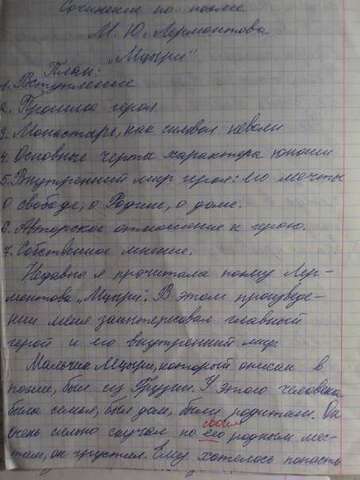 Сочинение по поэме
М. Ю. Лермонтова
"Мцыри"
План:
1. Вступление
2. Прошлое героя
3. Монастырь, как символ неволи
4. Основные черты характера юноши
5. Внутренний мир героя: его мечты
о свободе, о Родине, о доме.
6. Авторское отношение к герою.
7. Собственное мнение.
Недавно я прочитала поэму Лер-
монтова "Мцыри". В этом произведе-
нии меня заинтересовал главный
герой и его внутренний мир
Мальчик Мцыри, который описан в
поэме, был из Грузии. У этого человека
была семья, был дом, были родители. Он
своим
очень сильно скучал по его родным мес-
там, он грустил. Ему хотелось попасть